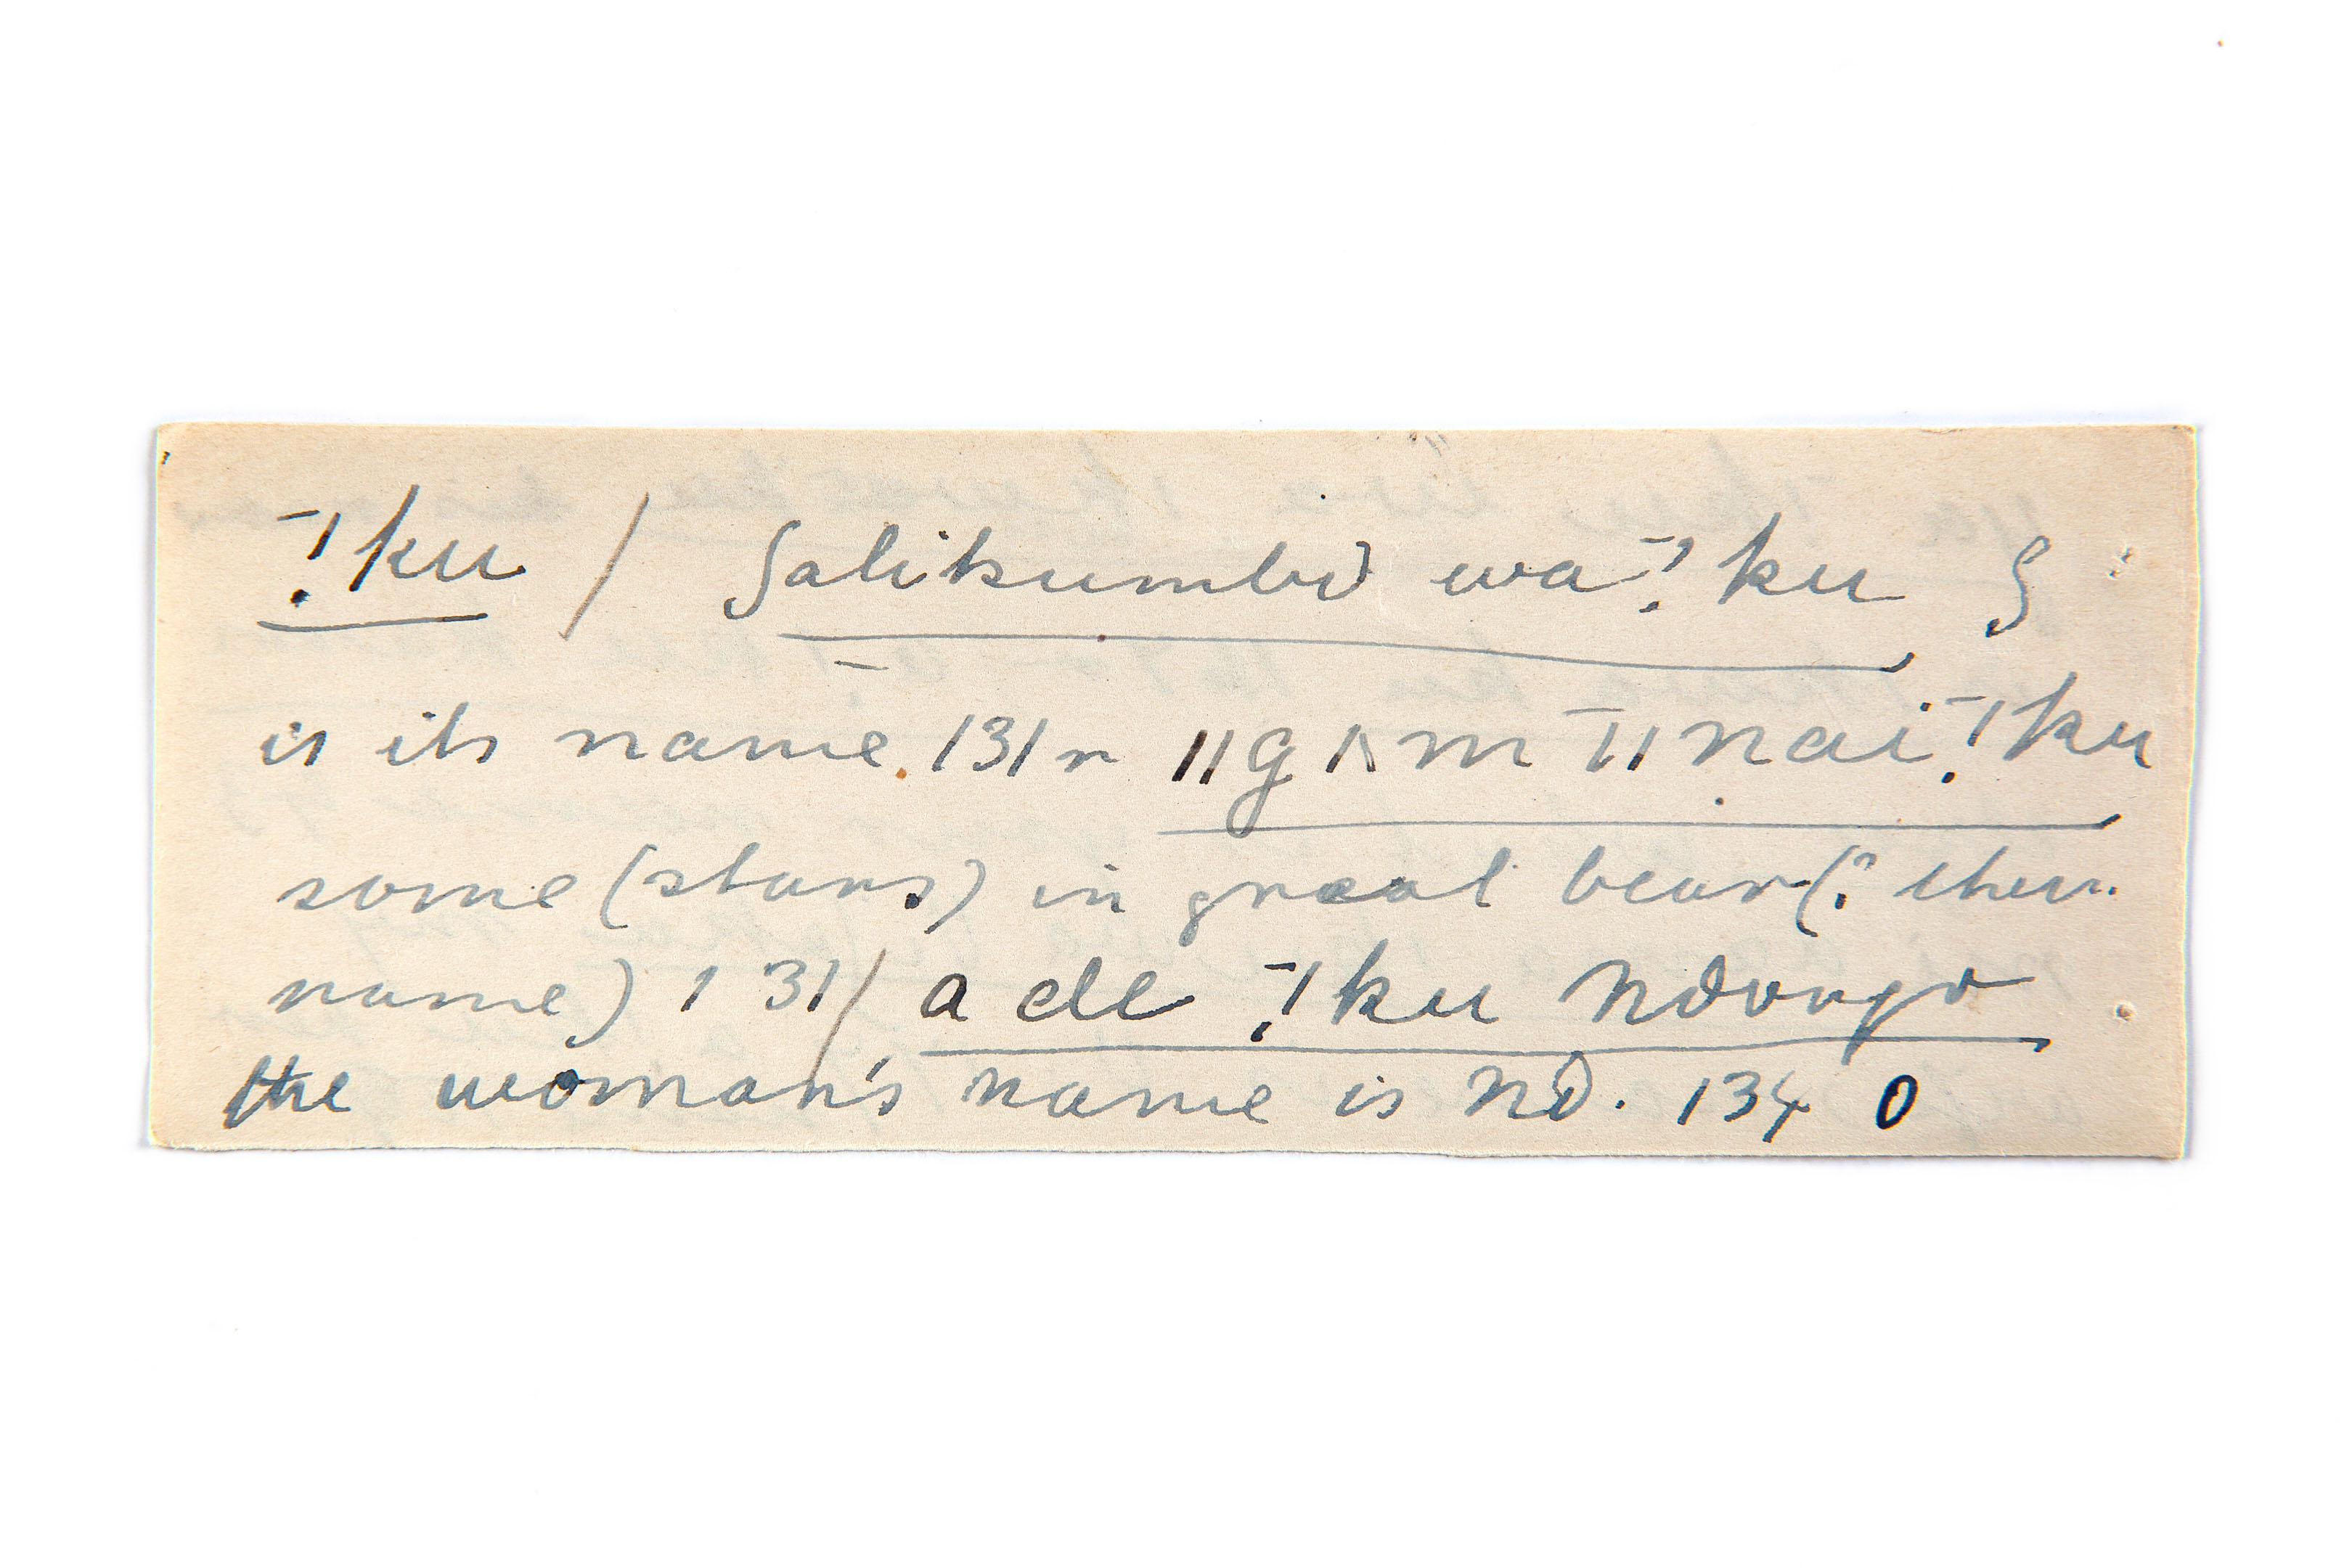 !ku / ʃalikumbɔ wa !ku ʃ
is its name. 131 r ǁg m ǁnai !ku
some (stars) in great bear (? their
name) 131 / a de !ku ndongo
the woman's name is Nd. 134 0